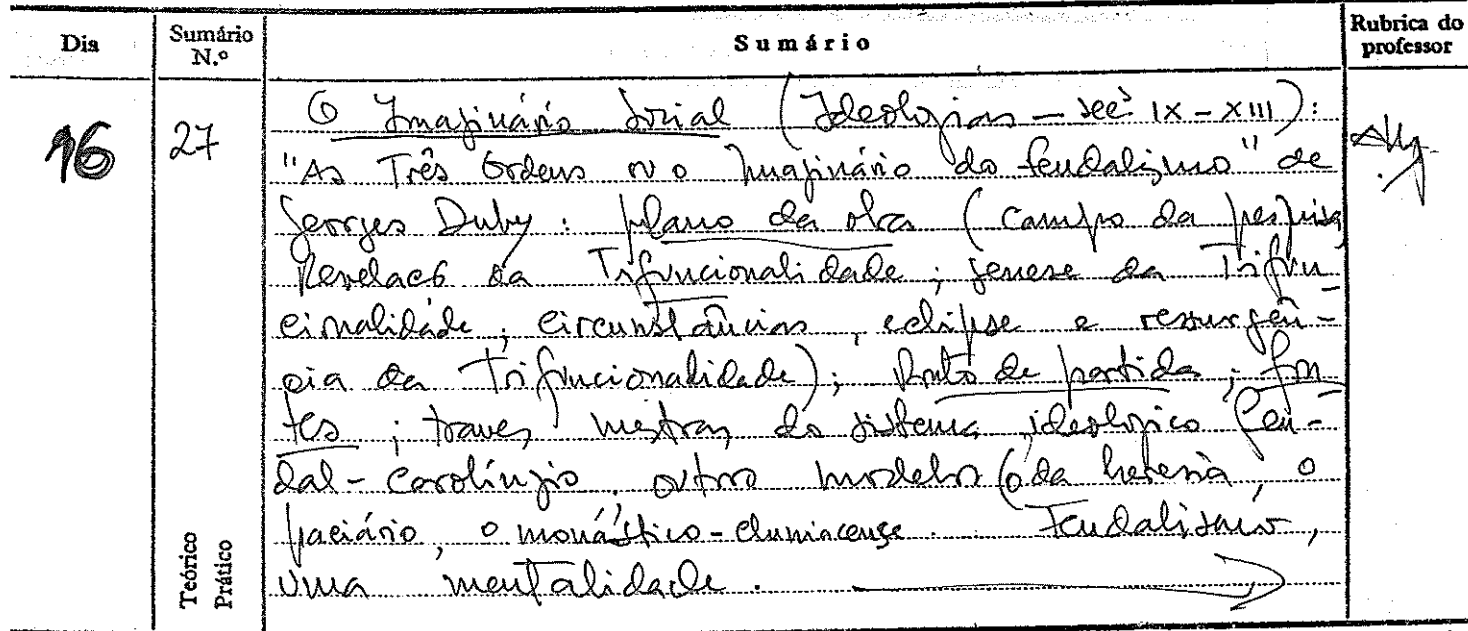 Dia
Sumário N.º
Sumário
Rubrica do professor
16
27
O Imaginário Social (Ideologias – secs IX – XIII):
"As Três Ordens ou o Imaginário do feudalismo" de
Georges Duby : plano da obra (campo da pesquisa
Revelação da Trifuncionalidade ; genese da Trifun
cionalidade ; circunstâncias , eclipse e ressurgên-
cia da Trifuncionalidade) ; Ponto de partida ; fon
tes ; traves mestras do sistema ideologico feu-
dal - Carolíngio , outros modelos (o da heresia , o
paciário , o monástico - cluniacense . Feudalismo ,
uma mentalidade .
Teórico
Prático